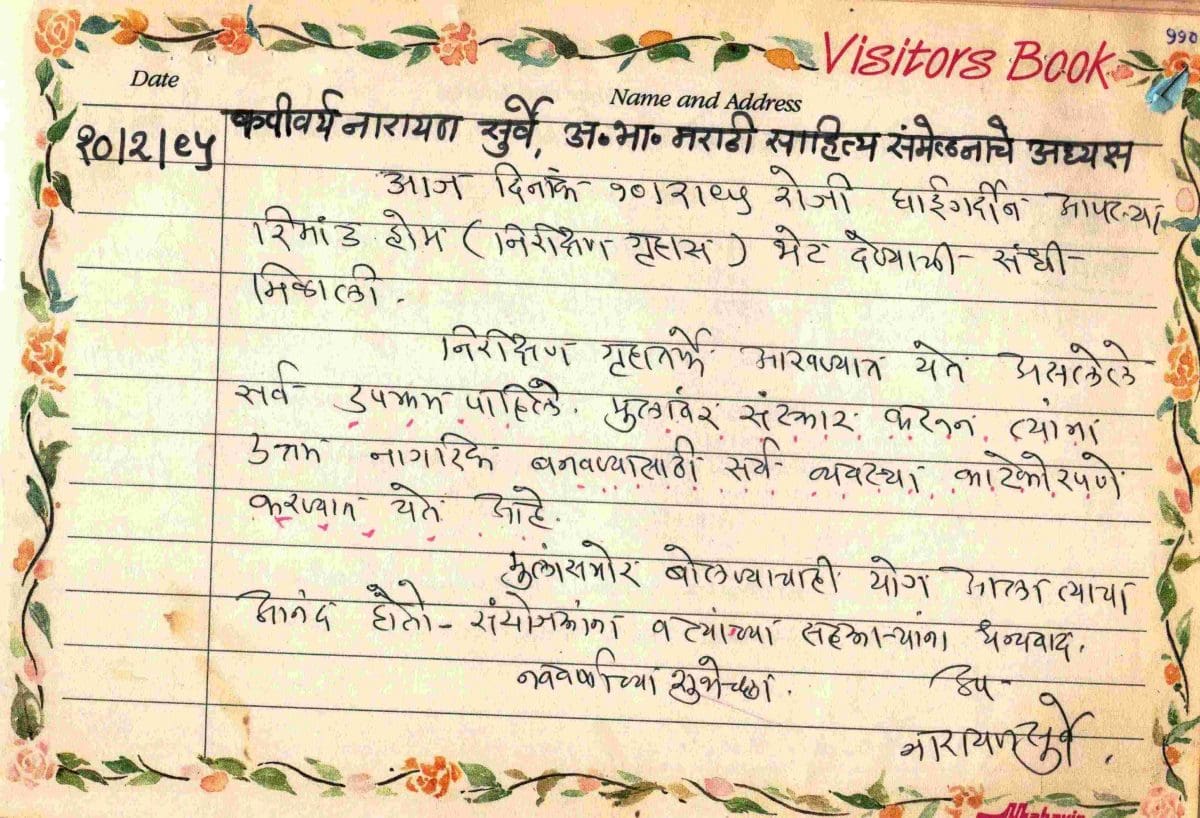 Visitors Book
990
Date
Name and Address
१०/२/९५
कवीवर्य नारायण सुर्वे, अ.भा. मराठी साहित्य संमेलनाचे अध्यक्ष
आज दिनांक १०/२/९५ रोजी घाईगर्दीन आपल्या
रिमांड होम (निरीक्षण गृहास) भेट देण्याची संधी
मिळाली.
निरीक्षण गृहातर्फे आखण्यात येत असलेले
सर्व उपक्रम पाहिले. मुलांवर संस्कार करून त्यांना
उत्तम नागरिक बनवण्यासाठी सर्व व्यवस्था काटेकोरपणे
करण्यात येत आहे.
मुलांसमोर बोलण्याचाही योग आला त्याचा
आनंद होतो - संयोजकांना व त्यांच्या सहकाऱ्यांना धन्यवाद.
नववर्षाच्या शुभेच्छा.
नारायण सुर्वे.